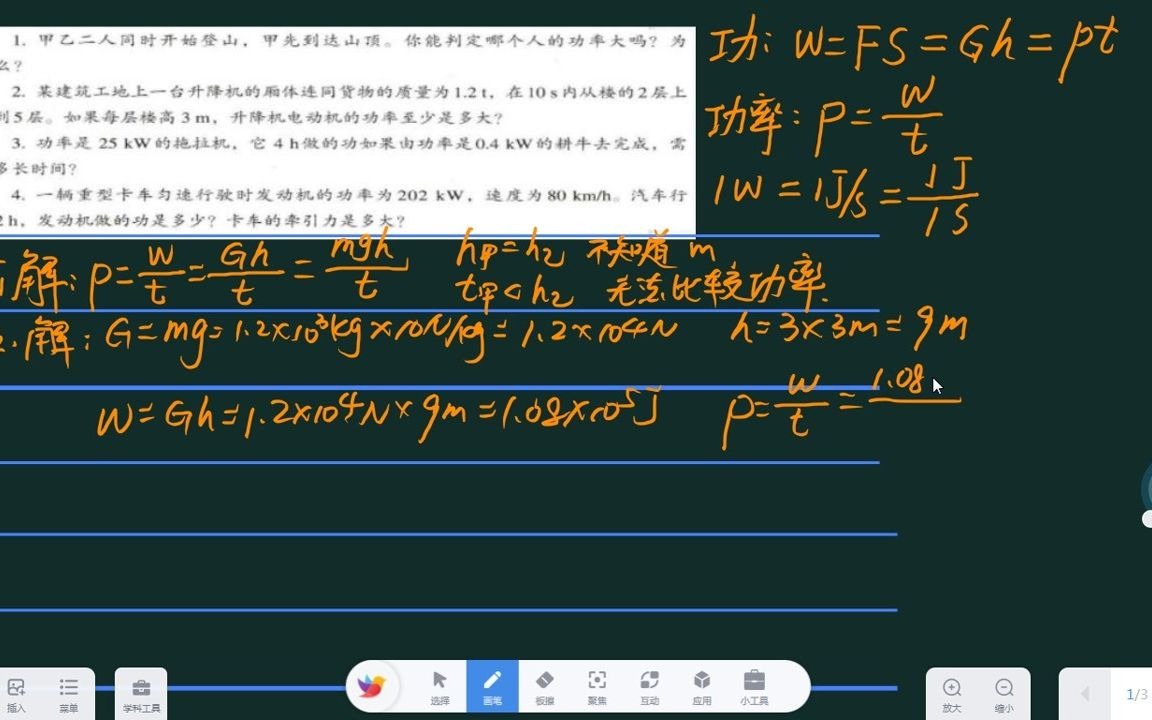 1. 甲乙二人同时开始登山，甲先到达山顶。你能判定哪个人的功率大吗？为
么？
2. 某建筑工地上一台升降机的厢体连同货物的质量为 1.2 t，在 10 s 内从楼的 2 层上
到 5 层。如果每层楼高 3 m，升降机电动机的功率至少是多大？
3. 功率是 25 kW 的拖拉机，它 4 h 做的功如果由功率是 0.4 kW 的耕牛去完成，需
多长时间？
4. 一辆重型卡车匀速行驶时发动机的功率为 202 kW，速度为 80 km/h。汽车行
2 h，发动机做的功是多少？卡车的牵引力是多大？
功: W=FS=Gh=pt
功率: P=W/t
1W=1J/s=1J/1S
解: P=W/t=Gh/t=mgh/t h甲=h乙 不知道 m
t甲<h乙 无法比较功率.
2.解: G=mg=1.2×10³kg×10N/kg=1.2×10⁴N h=3×3m=9m
W=Gh=1.2×10⁴N×9m=1.08×10⁵J P=W/t=1.08
插入 菜单 学科工具 选择 画笔 板擦 聚焦 互动 应用 小工具 放大 缩小 1/3